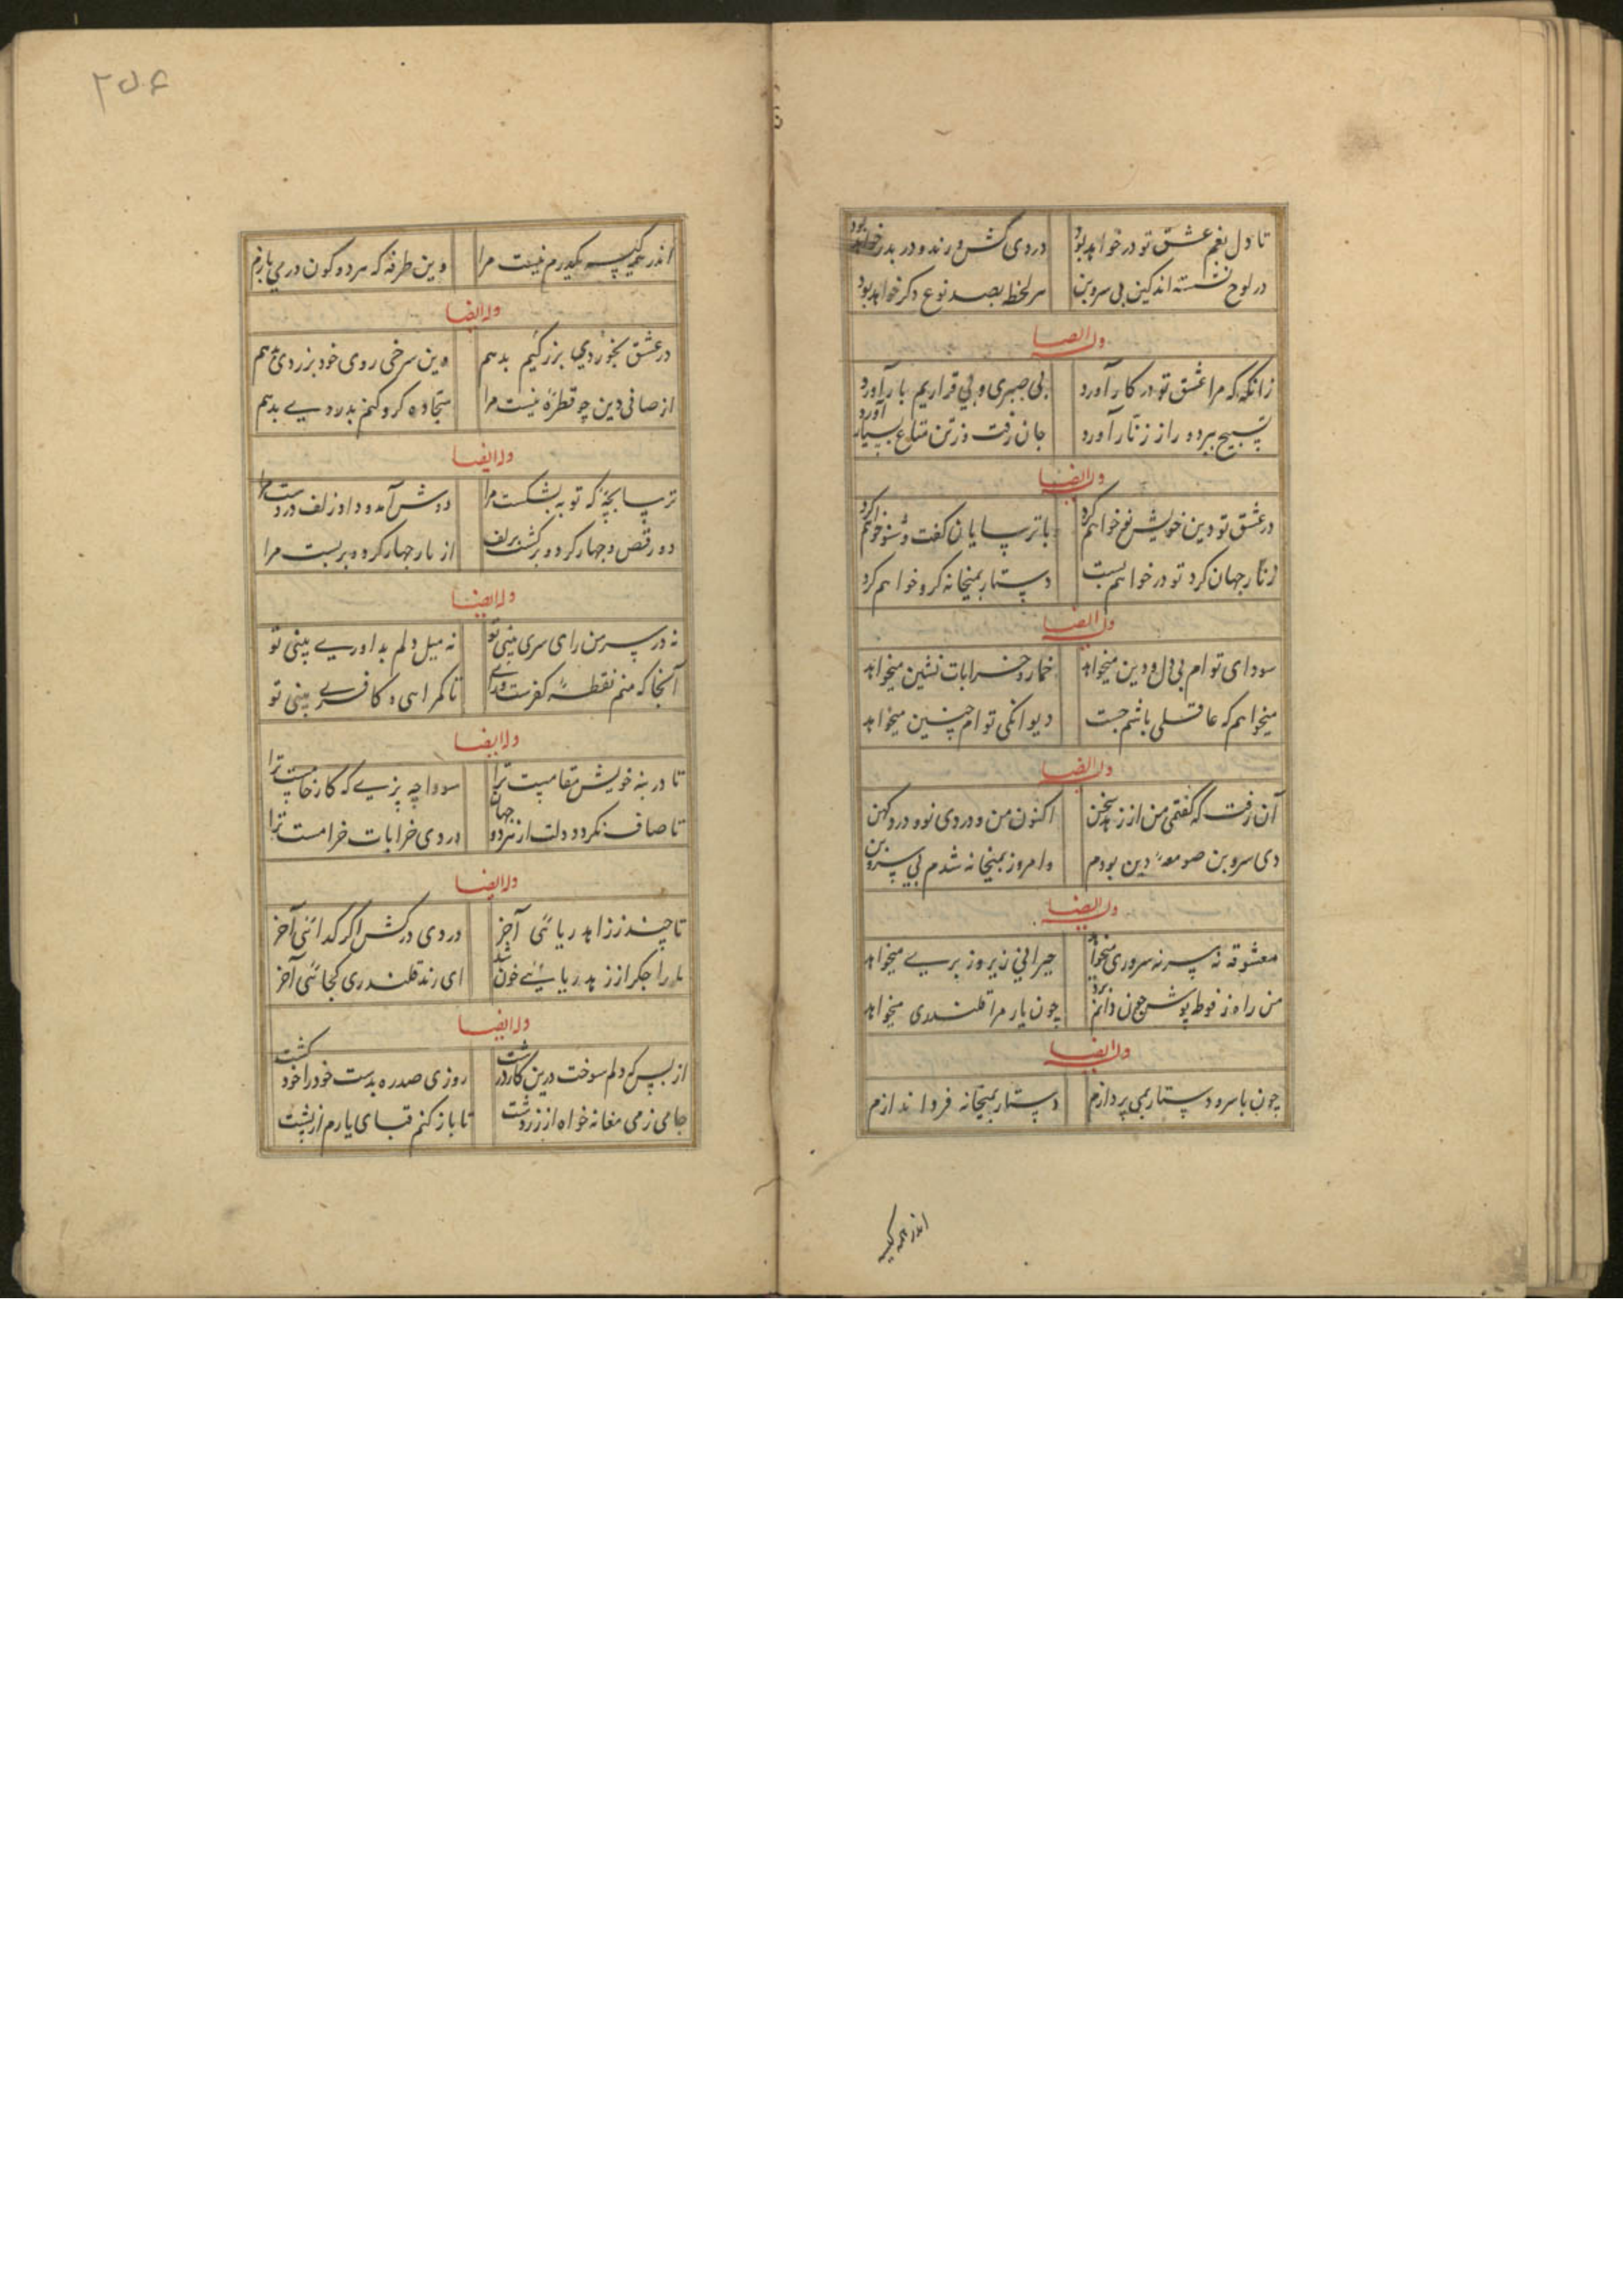 تا دل بغم عشق تو در خواهد بود دردی کش و رند و در بدر خواهد بود
در لوح نشسته اند کین بی سر و بن هر لحظه بصد نوع دکر خواهد بود
وله ایضا
زانکه که مرا عشق تو در کار آورد بی صبری و بی قراریم بار آورد
تسبیح ببرد و راز زنار آورد جان رفت و ز تن متاع بسیار آورد
وله ایضا
در عشق تو دین خویش نو خواهم کرد با ترسایان کفت و شنو خواهم کرد
زنار جهان کرد تو در خواهم بست دستار بمیخانه کرو خواهم کرد
وله ایضا
سودای توام بی دل و دین میخواهد خمار و خرابات نشین میخواهد
میخواهم که عاقلی باشم جست دیوانکی توام چنین میخواهد
وله ایضا
آن رفت که کفتمی من از زهد سخن اکنون من و دردی نو و درد کهن
دی سرو بن صومعهٔ دین بودم وامروز بمیخانه شدم بی سر و بن
وله ایضا
معشوقه نه سر نه سروری میخواهد حیرانی زیر و زبری میخواهد
من راه ز فوطه پوش چون دانم برد چون یار مرا قلندری میخواهد
وله ایضا
چون با سر و دستار نمی پردازم دستار بمیخانه فرو اندازم
اندر همه کیسه
۲۵۶
اندر همه کیسه یکدرم نیست مرا وین طرفه که هر دو کون در می بازم
وله ایضا
در عشق بخوردی بزرکیم بدهم وین سرخی روی خود بزردی بدهم
از صافی دین چو قطرهٔ نیست مرا سجاده کرو کنم بدردیے بدهم
وله ایضا
ترسا بچهٔ که توبه بشکست مرا دوش آمد و داد زلف در دست مرا
در رقص و چهار کرد و برکشت بر لف از نار چهار کرده بربست مرا
وله ایضا
نه در سر من رای سری بینی تو نه میل دلم بداوریے بینی تو
آنجا که منم نقطهٔ کفرست ولی تا کمراهی و کافری بینی تو
وله ایضا
تا در بنه خویش مقامیست ترا سودا چه پزیے که کار خامیست ترا
تا صاف نکردد دلت از هر دو جهان دردی خرابات حرامست ترا
وله ایضا
تا چند ز زاهد ریائی آخر دردی درکش اکر کدائی آخر
ما را جکر از زهد ریائے خون شد ای رند قلندری کجائی آخر
وله ایضا
از بس که دلم سوخت درین کار درشت روزی صد ره بدست خود را خود کشت
جامی ز می مغانه خواه از زردشت تا باز کنم قبای یارم از پشت